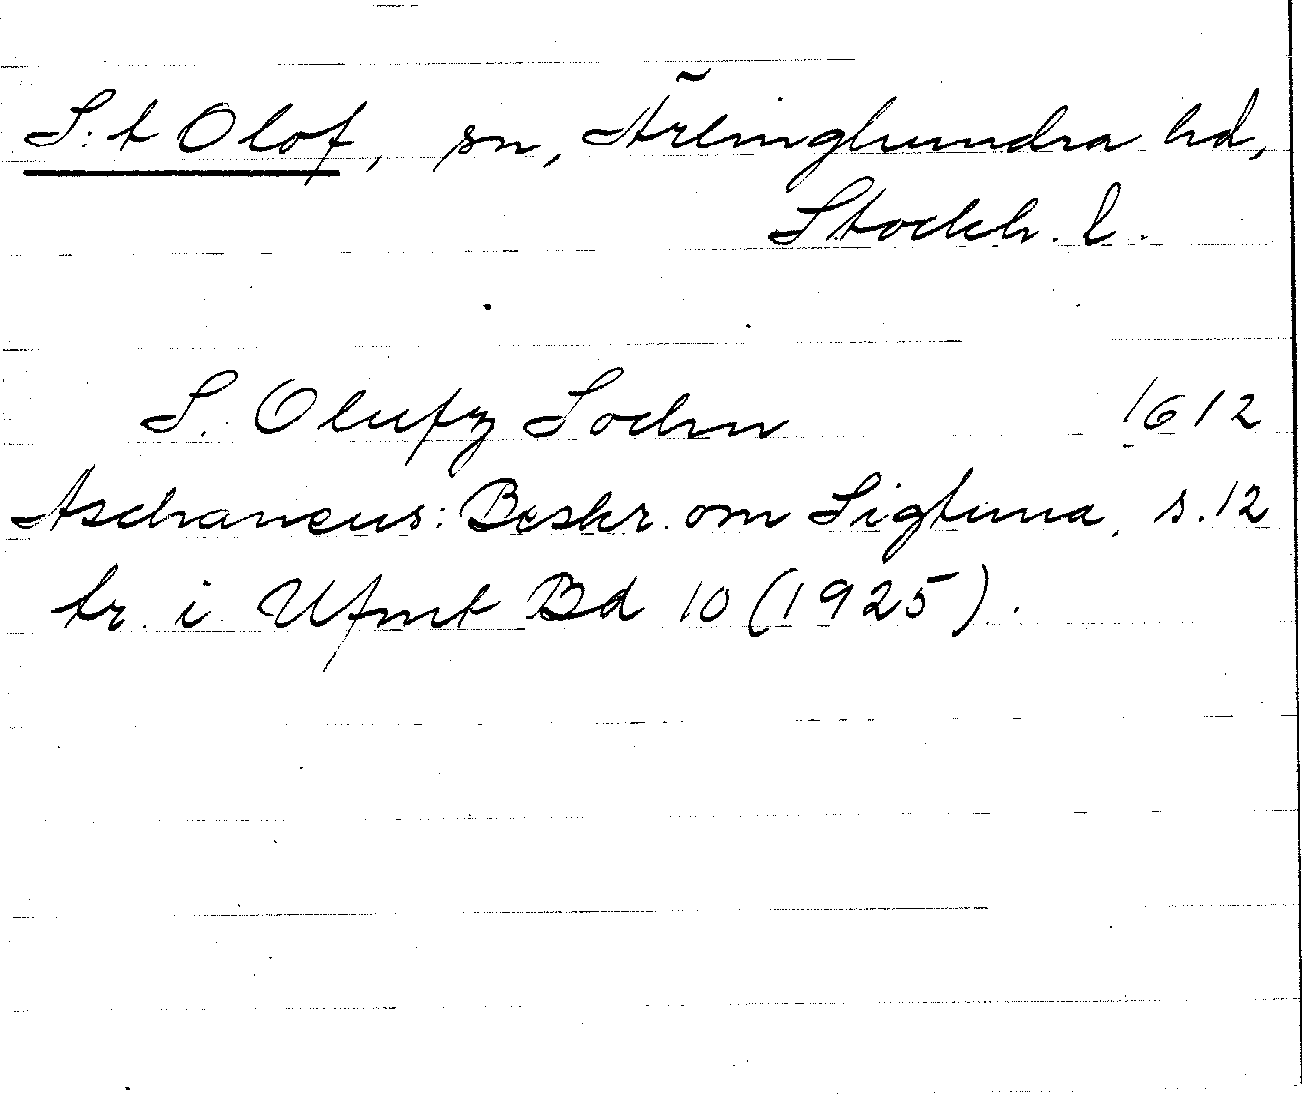 S:t Olof, sn, Ärlinghundra hd,
Stockh. l.
S. Olufz Sochn 1612
Aschaneus: Beskr. om Sigtuna, s. 12
tr. i Ufmt Bd 10 (1925).